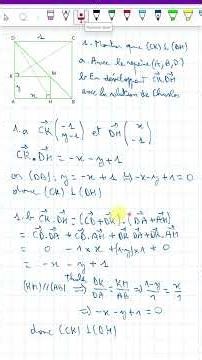 D 1 C
K M
y
A x H B
1. Montrer que (CK) ⊥ (DH)
a. Avec le repère (A, B, D)
b. En développant CK⃗.DH⃗
avec la relation de Chasles
1.a CK⃗ (-1 y-1) et DH⃗ (x -1)
CK⃗.DH⃗ = -x - y + 1
or (DB): y = -x + 1 ⇔ -x - y + 1 = 0
donc (CK) ⊥ (DH)
1.b CK⃗.DH⃗ = (CD⃗ + DK⃗).(DA⃗ + AH⃗)
= CD⃗.DA⃗ + CD⃗.AH⃗ + DK⃗.DA⃗ + DK⃗.AH⃗
= 0 - 1 × x + (1-y) × 1 + 0
= -x - y + 1
(KM) // (AB) ⇒ DK/DA = KM/AB ⇒ (1-y)/1 = x/1
⇒ -x - y + 1 = 0
donc (CK) ⊥ (DH)